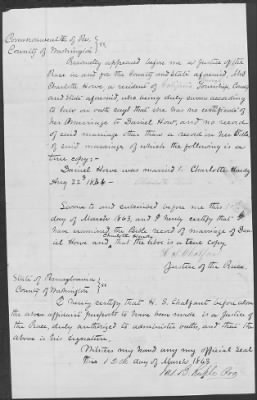 Commonwealth of Pa. } ss
County of Washington }
Personally appeared before me a Justice of the
Peace in and for the County and State aforesaid, Mrs
Charlotte Howe a resident of Township County
and State aforesaid, who being duly sworn according
to law on oath says that she has no certificate of
her Marriage to Daniel Howe, and no record
of said marriage other than a record in her Bible
of said marriage of which the following is a
true copy:-
Daniel Howe was married to Charlotte Hardy
Aug 22d
Sworn to and subscribed before me this
day of March 1863, and I hereby certify that I
have examined the Bible record of marriage of Dan
Charlotte Hardy
iel Howe and that the above is a true copy
H. S. Chalfant
Justice of the Peace.
State of Pennsylvania } ss
County of Washington }
I hereby certify that H. S. Chalfant before whom
the above affidavit purports to have been made is a Justice of
the Peace, duly authorized to administer oaths, and that the
above is his signature.
Witness my hand and my official seal
this 12th day of March 1863
Pro